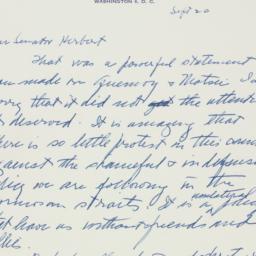 WASHINGTON 5, D. C.
Sept 20
Senator Herbert
That was a powerful statement
made on Quemoy & Matsu. I
that it did not get the attention
deserved. It is amazing that
there is so little protest in this
against the shameful &
we are following in the
Formosan straits. It is a
leave us without friends and